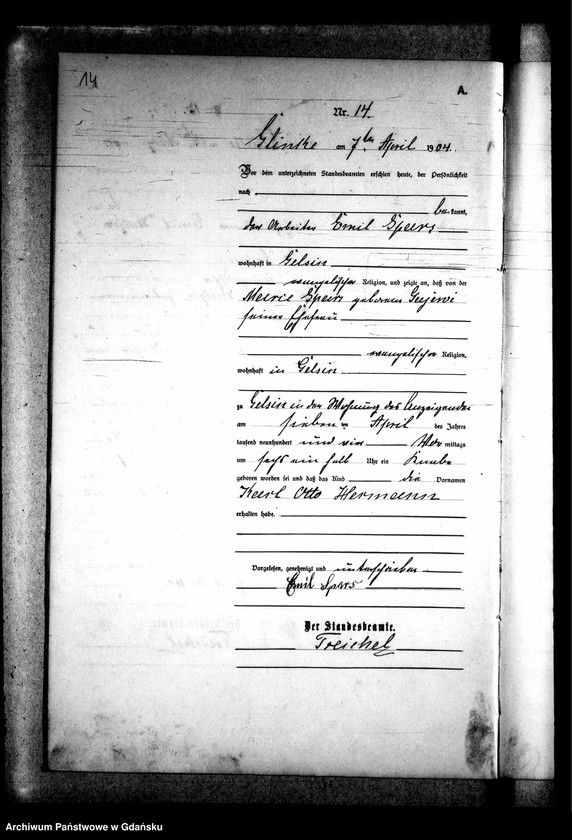 14
A.
Nr. 14.
Glinke am 7ten April 1904.
Vor dem unterzeichneten Standesbeamten erschien heute, der Persönlichkeit
nach
be kannt,
der Arbeiter Emil Spers
wohnhaft in Gelsin
evangelischer Religion, und zeigte an, daß von der
Marie Spers geborenen
seiner Ehefrau
evangelischer Religion,
wohnhaft in Gelsin
zu Gelsin in der Wohnung des Anzeigenden
am sieben ten April des Jahres
tausend neunhundert und vier Vor mittags
um sechs ein halb Uhr ein Knabe
geboren worden sei und daß das Kind die Vornamen
Karl Otto Hermann
erhalten habe.
Vorgelesen, genehmigt und unterschrieben
Emil Spers
Der Standesbeamte.
Treichel
Archiwum Państwowe w Gdańsku